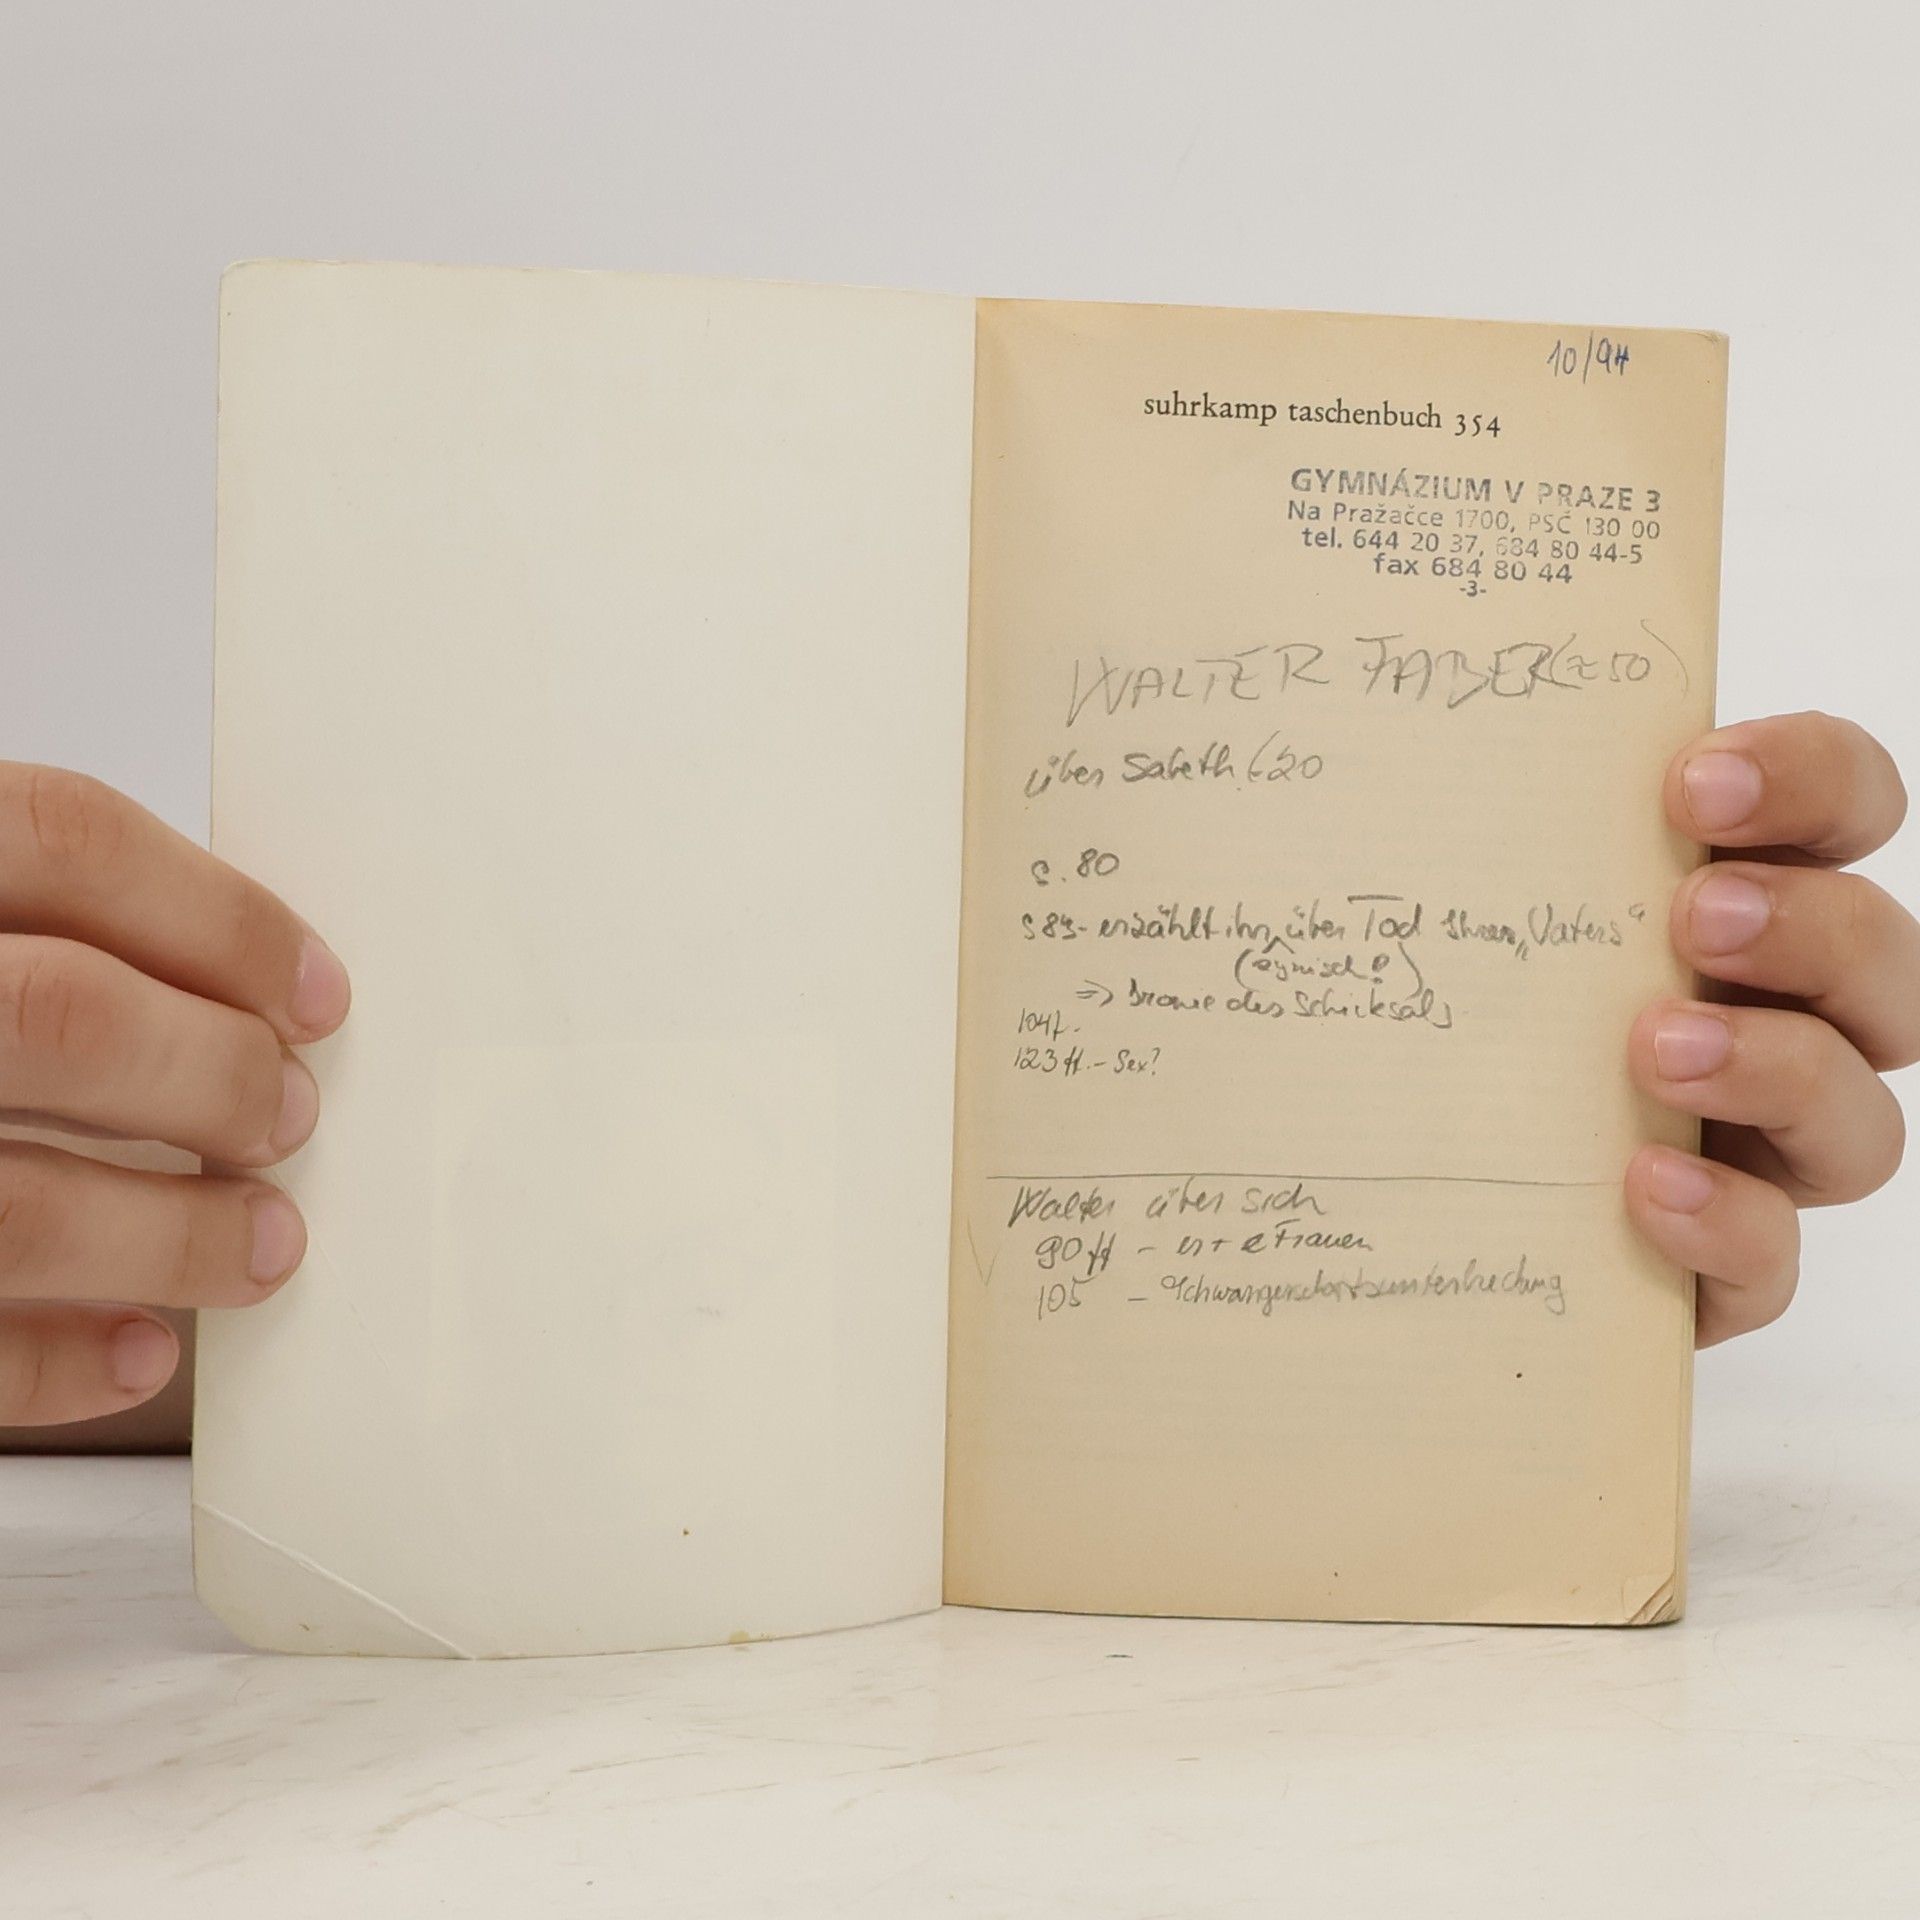 10/94
suhrkamp taschenbuch 354
GYMNÁZIUM V PRAZE 3
Na Pražačce 1700, PSČ 130 00
tel. 644 20 37, 684 80 44-5
fax 684 80 44
-3-
WALTER FABER (≈50)
über Sabeth (20
S. 80
erzählt ihr über Tod Ihres „Vaters“
(zynisch!)
=> Ironie des Schicksals
104f.
123 ff. - Sex?
Walter über sich
90 ff - er + e Frauen
105 - Schwangerschaftsunterbrechung